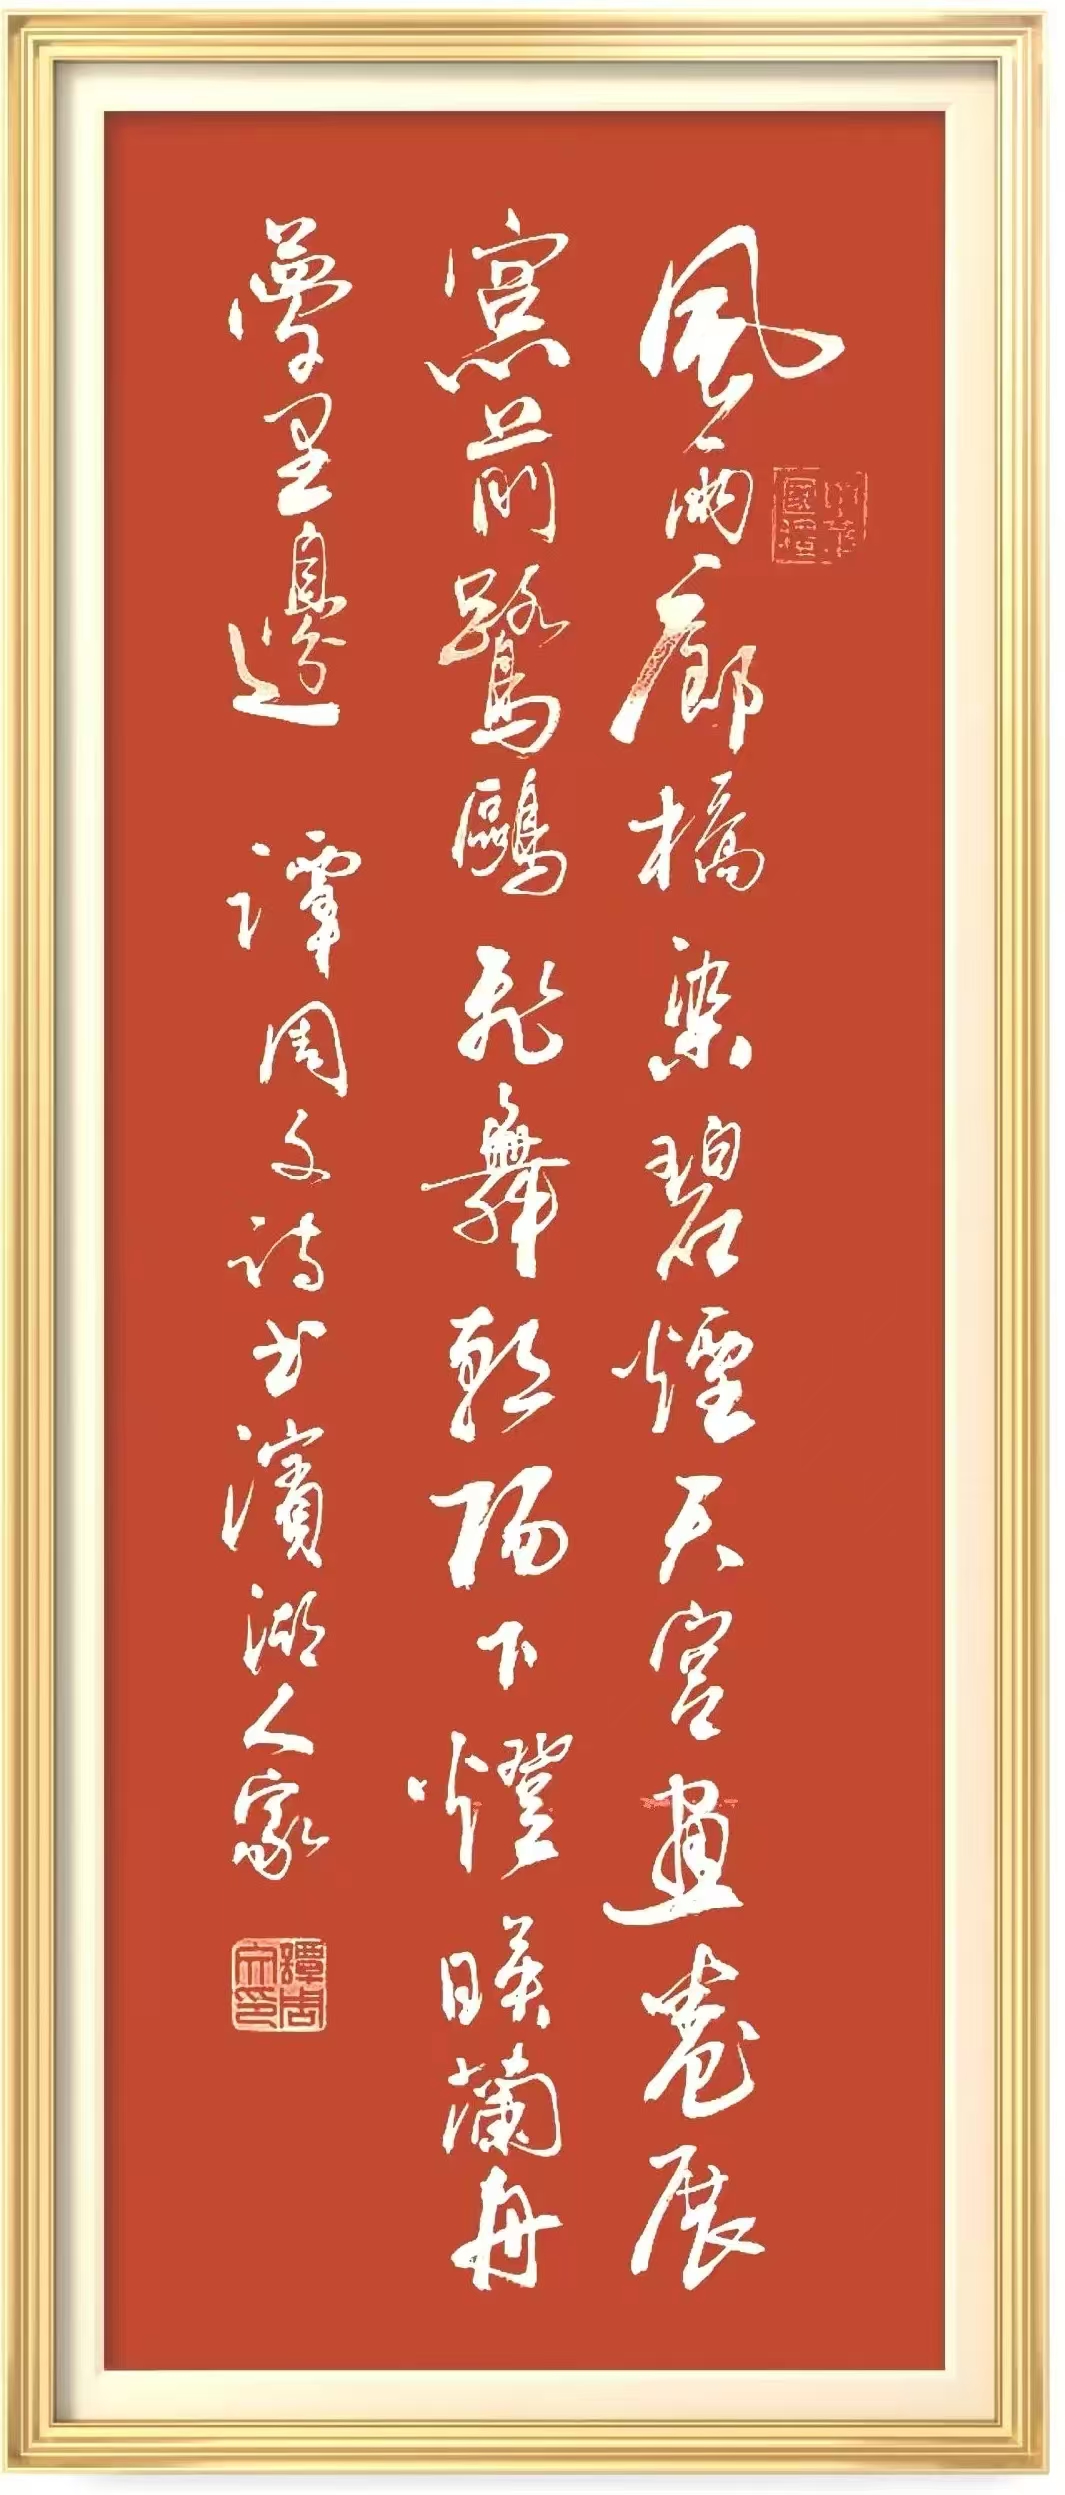 風雨廊橋染碧煙天宮畫卷展
窗前鷺鷗飛舞陽下燈映舟
夢里邊 譚周文詩書濱湖人家